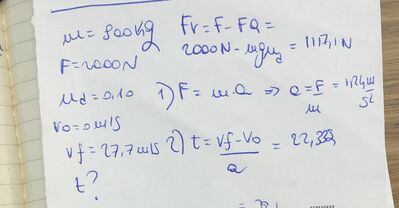 m = 900kg Fr = F - Fa =
2000N - mgμd = 1117,1N
F = 2000N
μd = 0,10 1) F = m.a ⇒ a = F/m = 1,24 m/s²
v0 = 0m/s
vf = 27,7m/s 2) t = vf - v0/a = 22,33s
t?